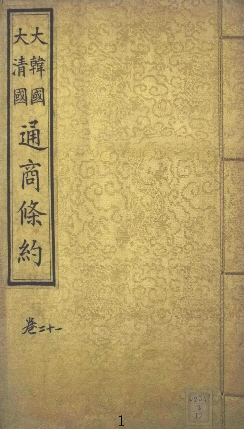 大韓國
大清國
通商條約
卷二十一
1